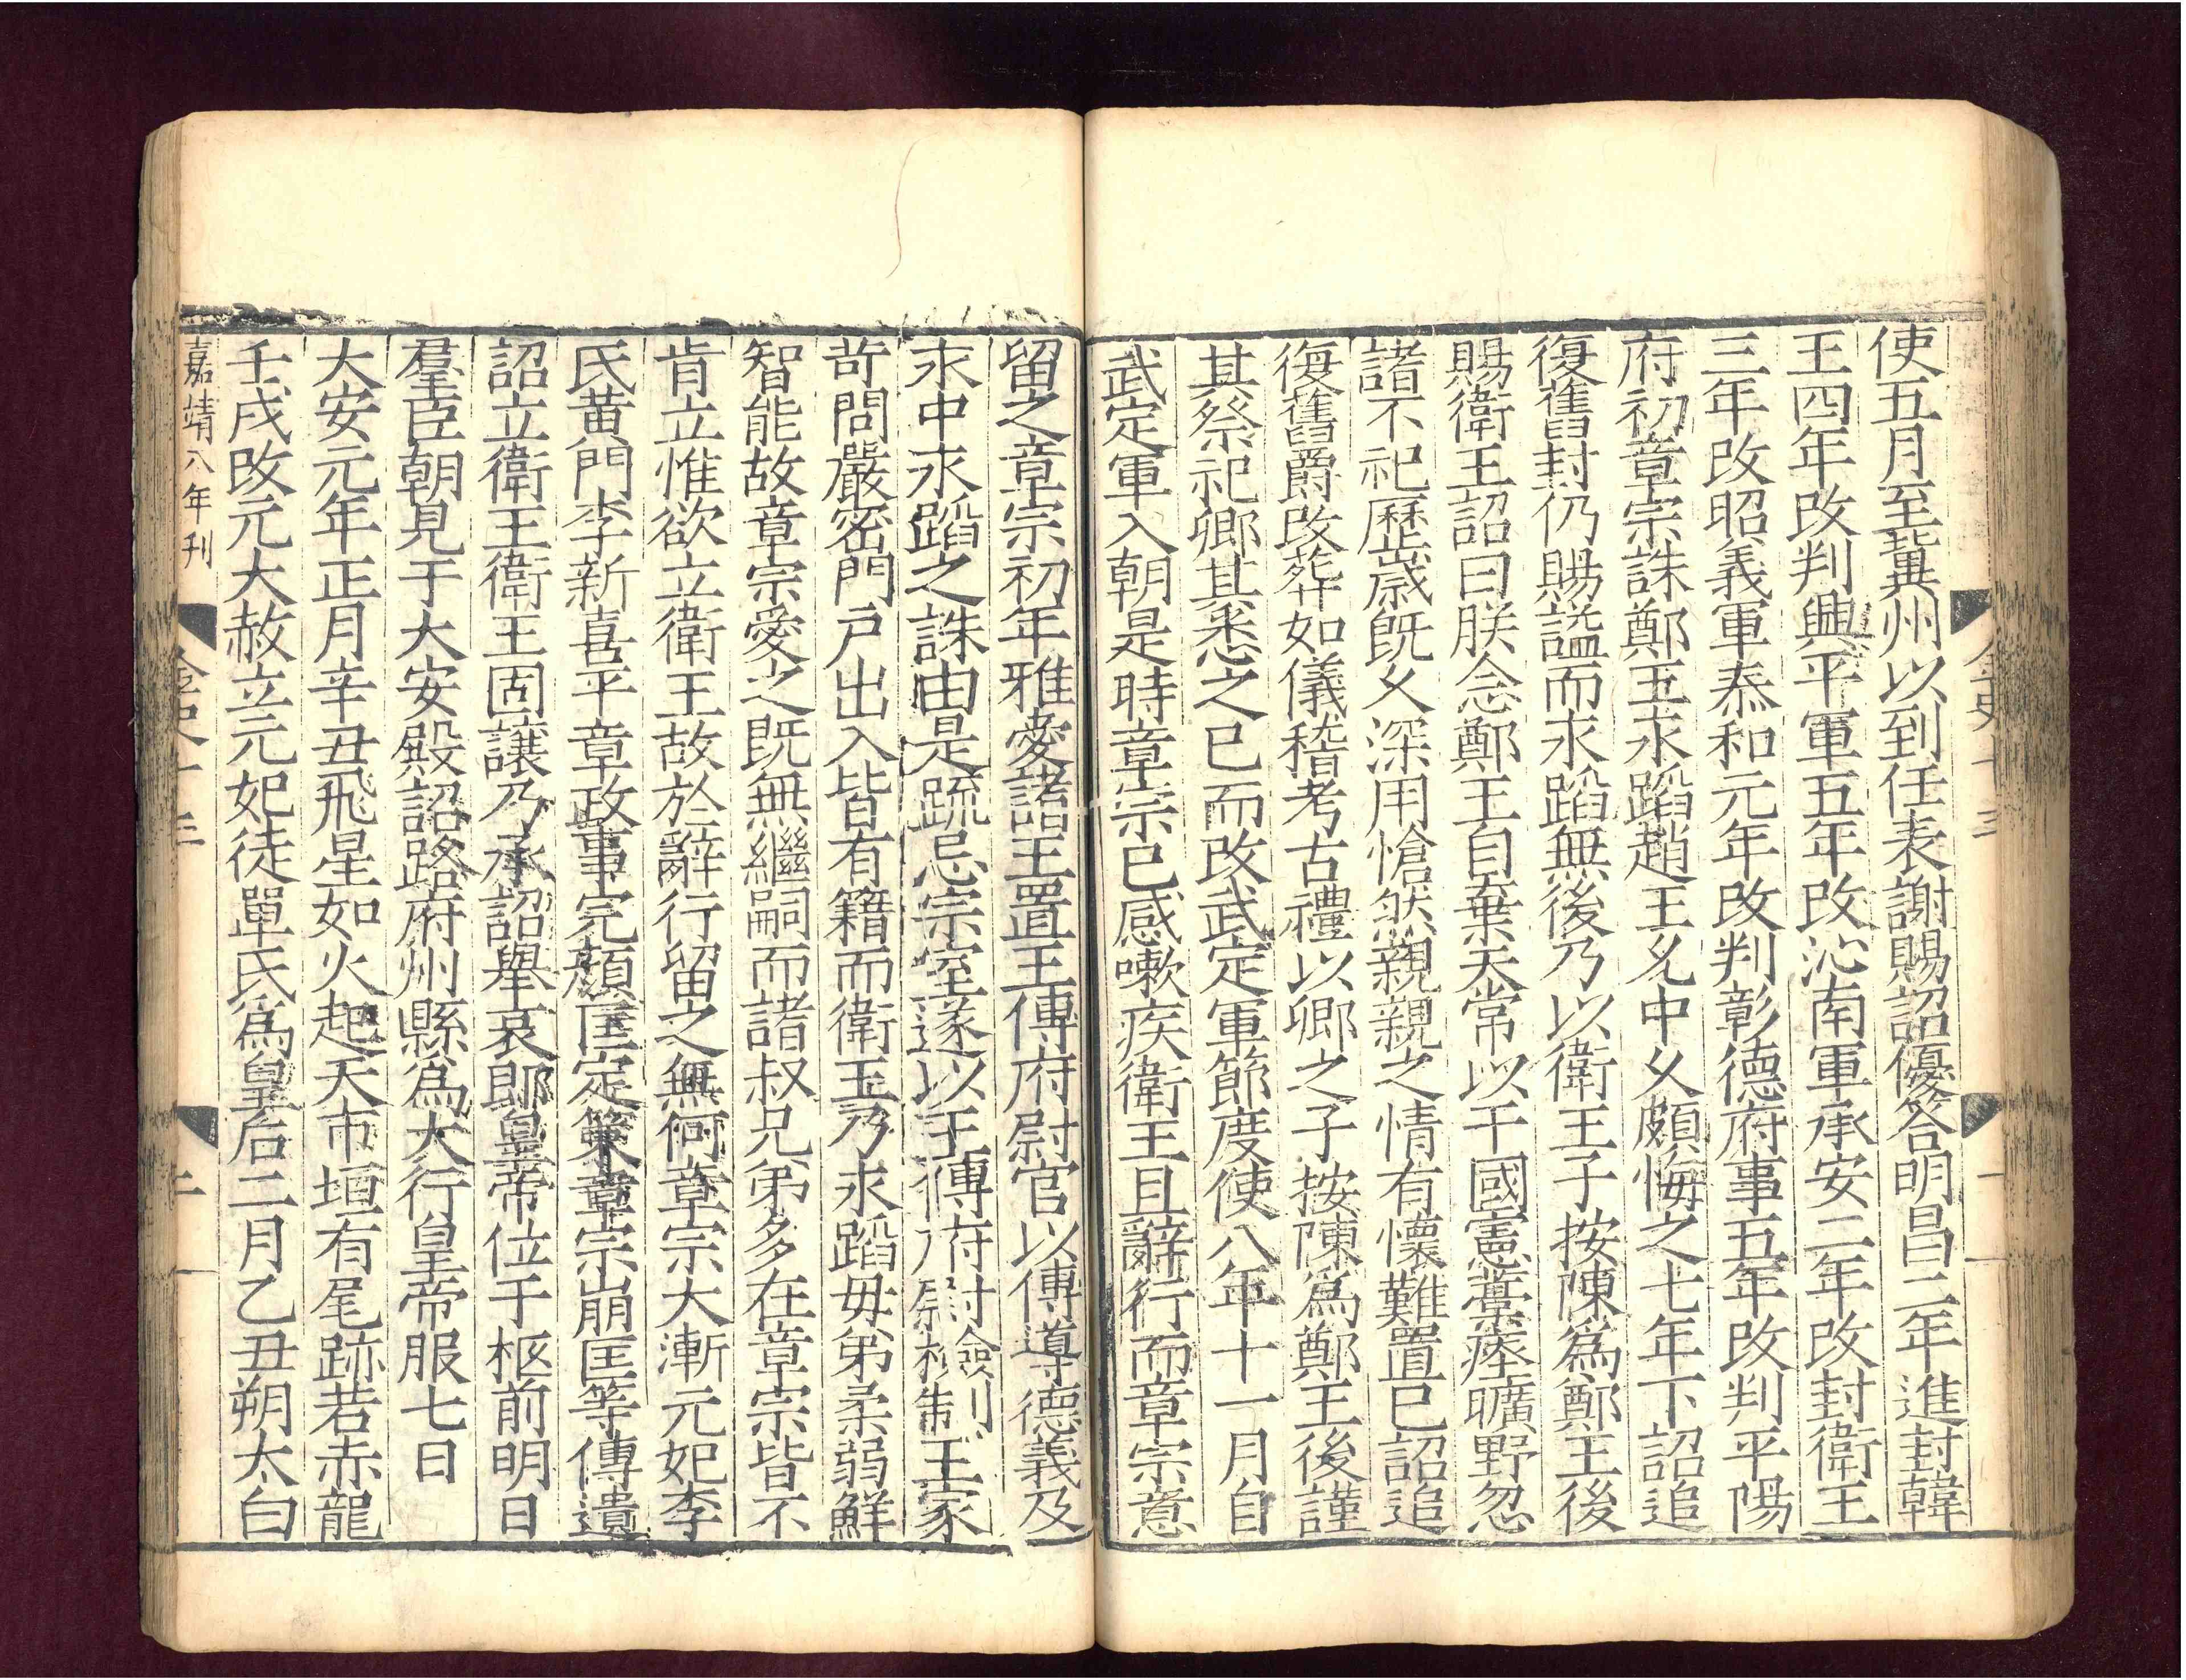 使五月至冀州以到任表謝賜詔優答明昌二年進封韓
王四年改判興平軍五年改沁南軍承安二年改封衛王
三年改昭義軍泰和元年改判彰德府事五年改判平陽
府初章宗誅鄭王永蹈趙王允中久頗悔之七年下詔追
復舊封仍賜謚而永蹈無後乃以衛王子按陳爲鄭王後
賜衛王詔曰朕念鄭王自棄天常以干國憲藁瘞曠野忽
諸不祀歷歲既久深用愴然親親之情有懷難置已詔追
復舊爵改葬如儀稽考古禮以卿之子按陳爲鄭王後謹
其祭祀卿其悉之已而改武定軍節度使八年十一月自
武定軍入朝是時章宗已感嗽疾衛王且辭行而章宗意
留之章宗初年雅愛諸王置王傅府尉官以傅導德義及
永中永蹈之誅由是疏忌宗室遂以王傅府尉檢制王家
苛問嚴密門戶出入皆有籍而衛王乃永蹈毋弟柔弱鮮
智能故章宗愛之既無繼嗣而諸叔兄弟多在章宗皆不
肯立惟欲立衛王故於辭行留之無何章宗大漸元妃李
氏黃門李新喜平章政事完顏匡定策章宗崩匡等傳遺
詔立衛王衛王固讓乃承詔舉哀即皇帝位于柩前明日
羣臣朝見于大安殿詔路府州縣爲大行皇帝服七日
大安元年正月辛丑飛星如火起天市垣有尾跡若赤龍
壬戌改元大赦立元妃徒單氏爲皇后二月乙丑朔太白
嘉靖八年刊
金史十三
二